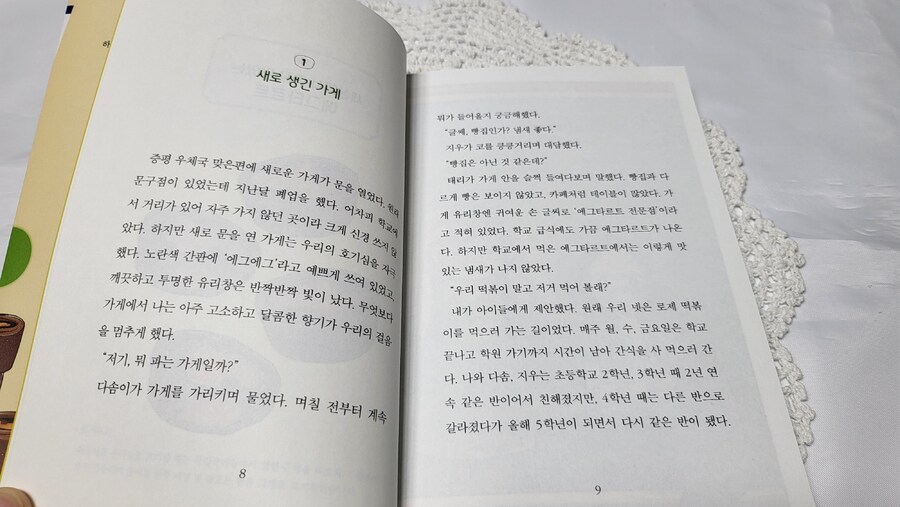 하
1
새로 생긴 가게
증평 우체국 맞은편에 새로운 가게가 문을 열었다. 원래
문구점이 있었는데 지난달 폐업을 했다. 어차피 학교에
서 거리가 있어 자주 가지 않던 곳이라 크게 신경 쓰지 않
았다. 하지만 새로 문을 연 가게는 우리의 호기심을 자극
했다. 노란색 간판에 ‘에그에그’라고 예쁘게 쓰여 있었고,
깨끗하고 투명한 유리창은 반짝반짝 빛이 났다. 무엇보다
가게에서 나는 아주 고소하고 달콤한 향기가 우리의 걸음
을 멈추게 했다.
“저기, 뭐 파는 가게일까?”
다솜이가 가게를 가리키며 물었다. 며칠 전부터 계속
8
뭐가 들어올지 궁금해했다.
“글쎄, 빵집인가? 냄새 좋다.”
지우가 코를 킁킁거리며 대답했다.
“빵집은 아닌 것 같은데?”
태리가 가게 안을 슬쩍 들여다보며 말했다. 빵집과 다
르게 빵은 보이지 않았고, 카페처럼 테이블이 많았다. 가
게 유리창엔 귀여운 손 글씨로 ‘에그타르트 전문점’이라
고 적혀 있었다. 학교 급식에도 가끔 에그타르트가 나온
다. 하지만 학교에서 먹은 에그타르트에서는 이렇게 맛
있는 냄새가 나지 않았다.
“우리 떡볶이 말고 저거 먹어 볼래?”
내가 아이들에게 제안했다. 원래 우리 넷은 로제 떡볶
이를 먹으러 가는 길이었다. 매주 월, 수, 금요일은 학교
끝나고 학원 가기까지 시간이 남아 간식을 사 먹으러 간
다. 나와 다솜, 지우는 초등학교 2학년, 3학년 때 2년 연
속 같은 반이어서 친해졌지만, 4학년 때는 다른 반으로
갈라졌다가 올해 5학년이 되면서 다시 같은 반이 됐다.
9